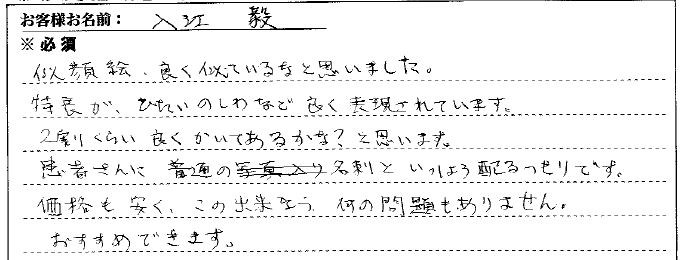 お客様お名前： 入江 毅
※必須
似顔絵、良く似ているなと思いました。
特長が、ひたいのしわなど良く表現されています。
2割くらい良くかいてあるかな？と思います。
患者さんに 普通の写真入り名刺といっしょう配るつもりです。
価格も安く、この出来なら、何の問題もありません。
おすすめできます。